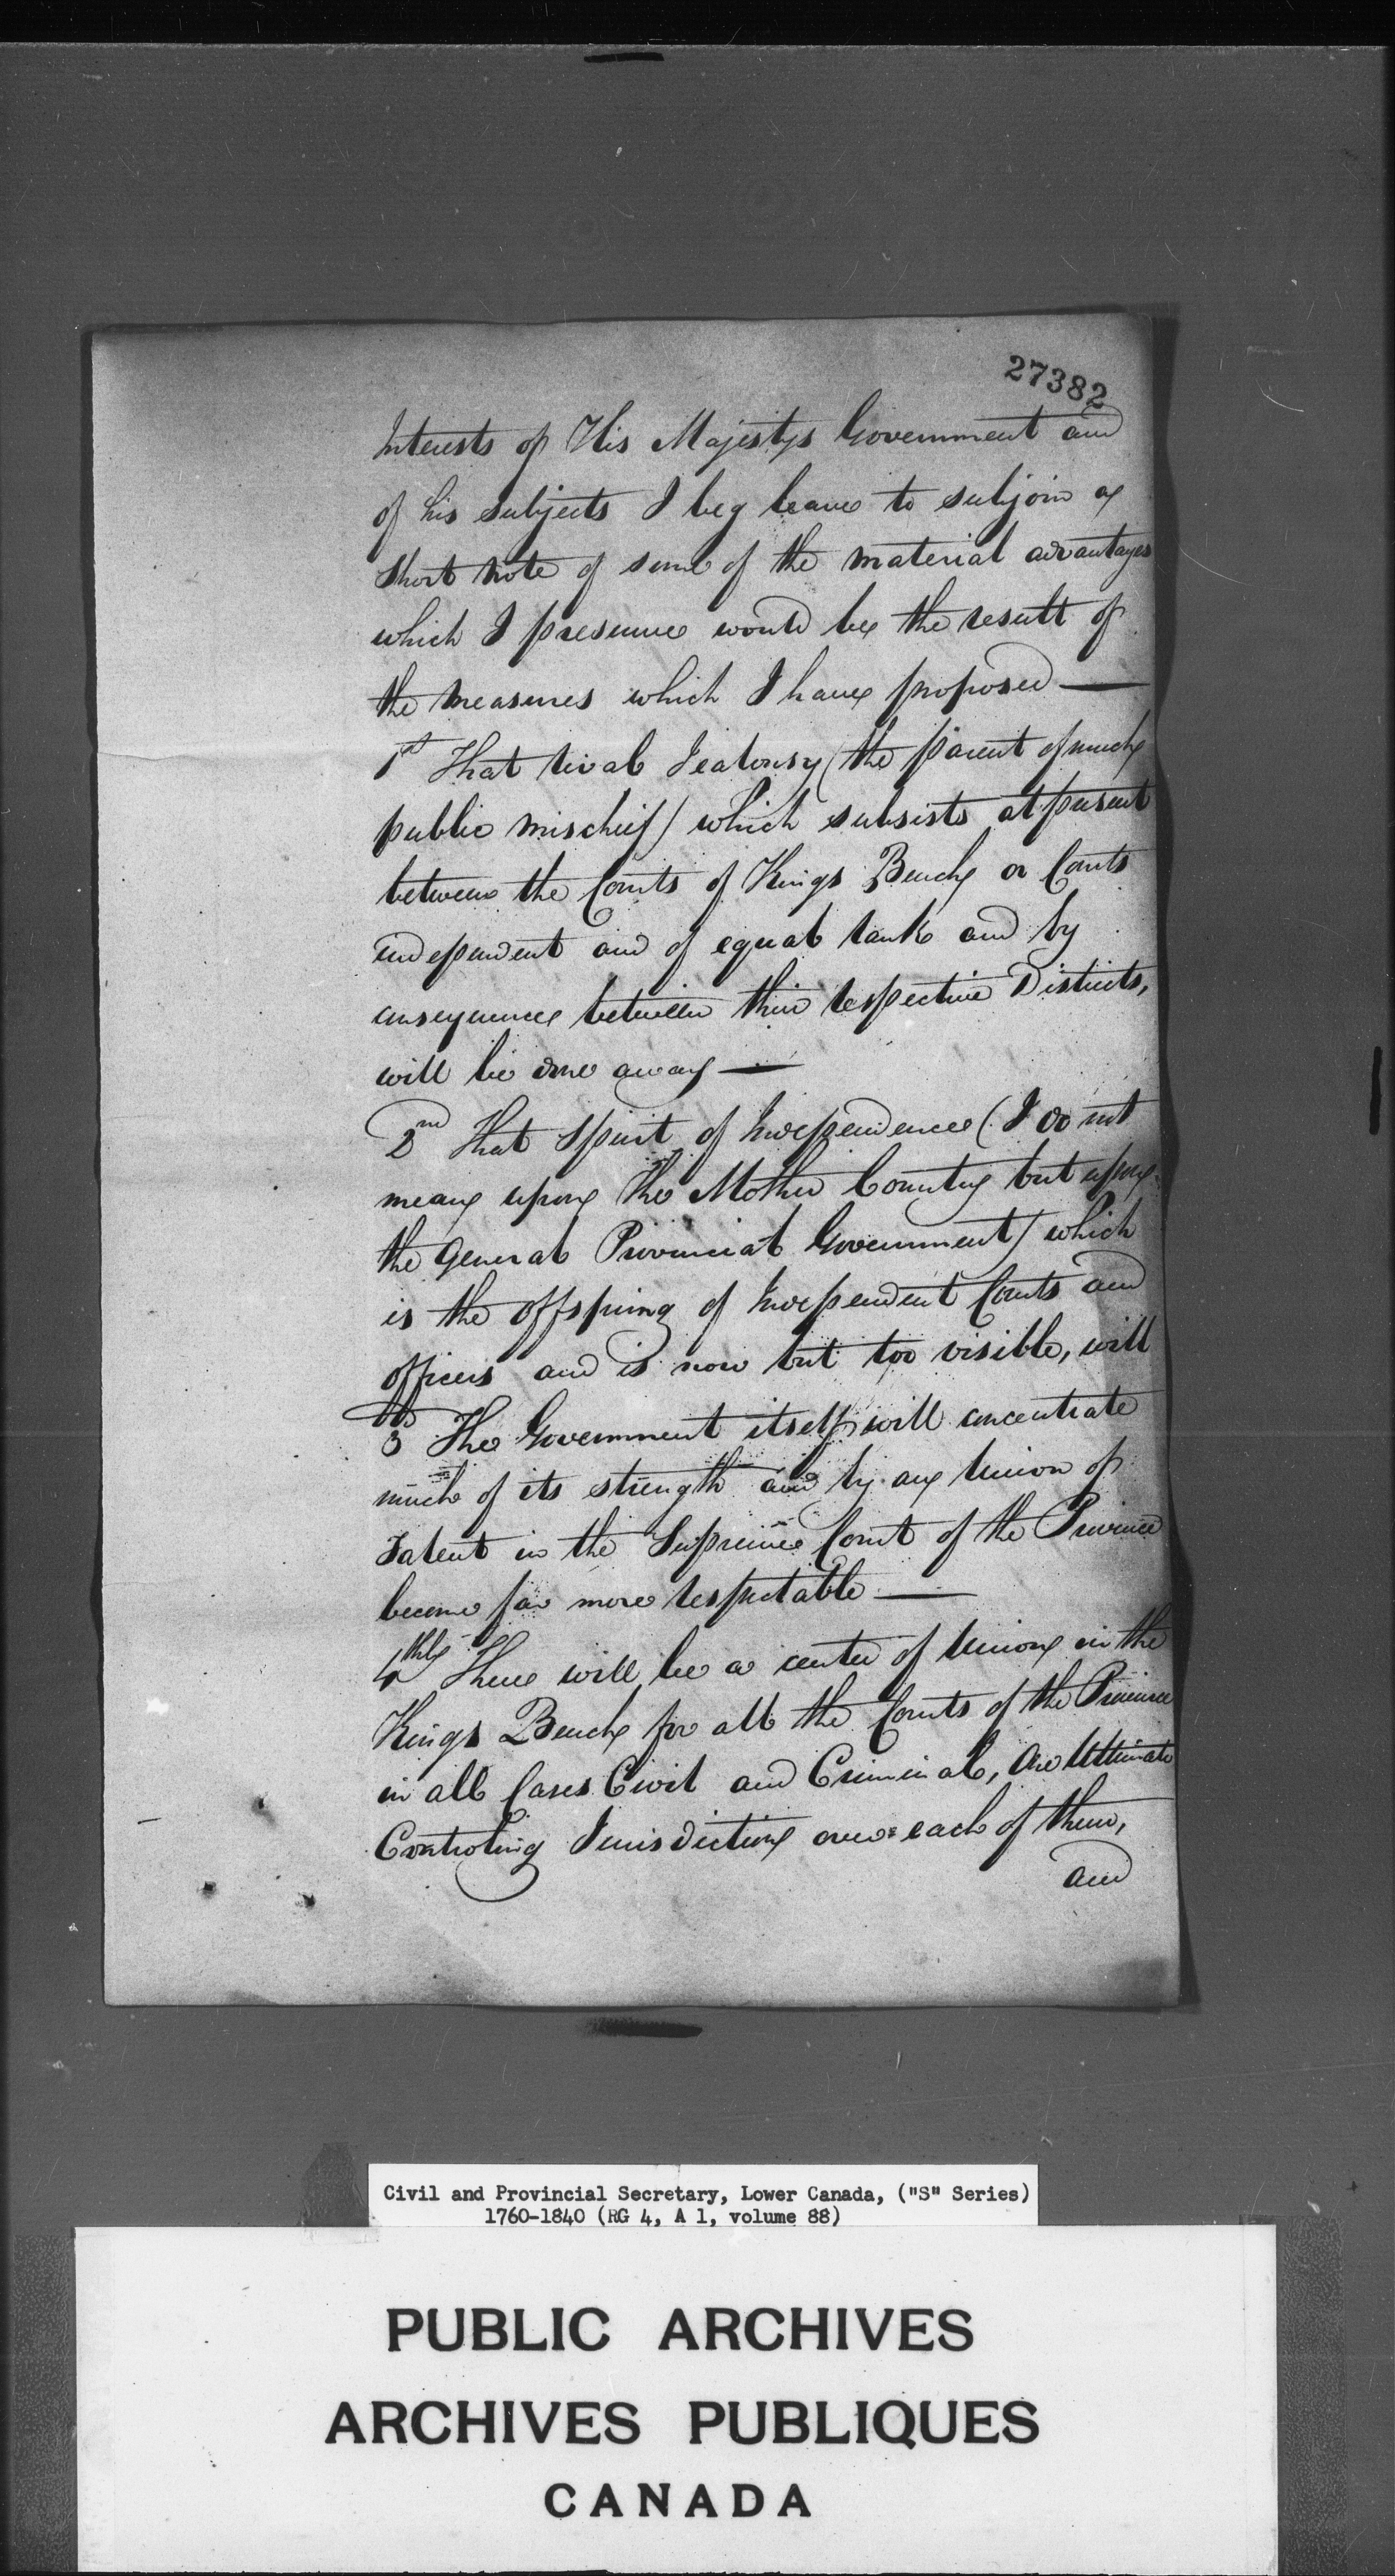 27382
Interests of His Majestys Government and
of his subjects I beg leave to subjoin a
short note of some of the material advantages
which I presume would be the result of
the measures which I have proposed —
1st That rival Jealousy (the parent of much
public mischief) which subsists at present
between the Courts of Kings Bench or Courts
independent and of equal rank and by
consequence between their respective Districts,
will be done away —
2nd That Spirit of Independence (I do not
mean upon the Mother Country but upon
the general Provincial Government) which
is the offspring of Independent Courts and
officers and is now but too visible, will
3 The Government itself will concentrate
much of its strength and by an Union of
Talent in the Supreme Court of the Province
become far more respectable —
4thly There will be a center of Union in the
Kings Bench for all the Courts of the Province
in all Cases Civil and Criminal, One Ultimate
Controling Jurisdiction over each of them,
and
Civil and Provincial Secretary, Lower Canada, ("S" Series)
1760-1840 (RG 4, A 1, volume 88)
PUBLIC ARCHIVES
ARCHIVES PUBLIQUES
CANADA